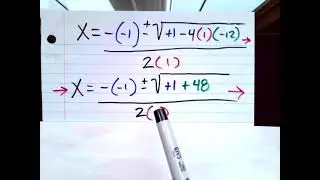 X = -(-1) ± √+1 - 4(1)(-12) →
2(1)
→ X = -(-1) ± √+1 + 48 →
2(